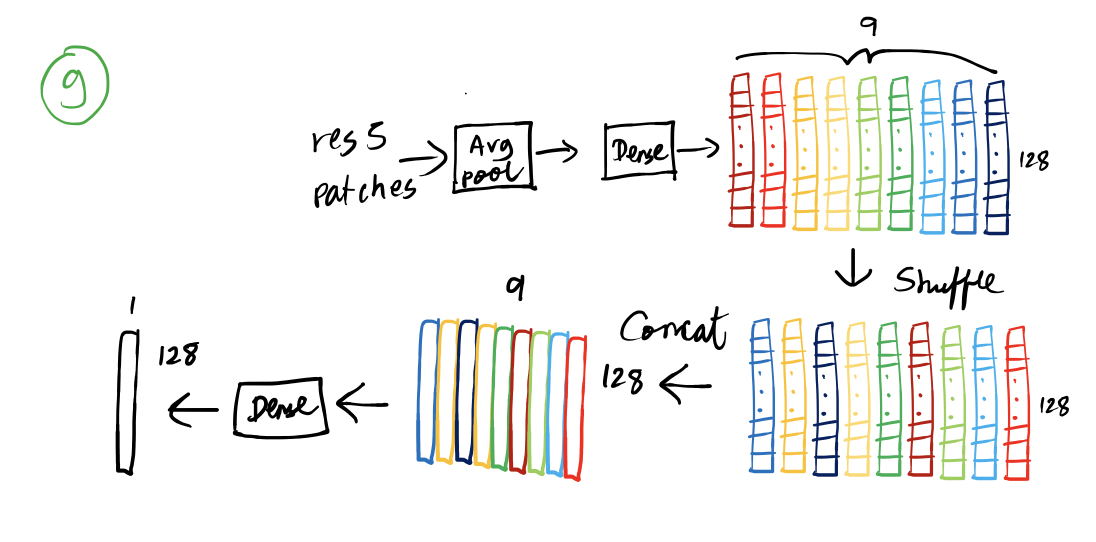 g
res 5
patches
Avg
pool
Dense
9
128
Shuffle
128
Concat
128
9
Dense
128
1